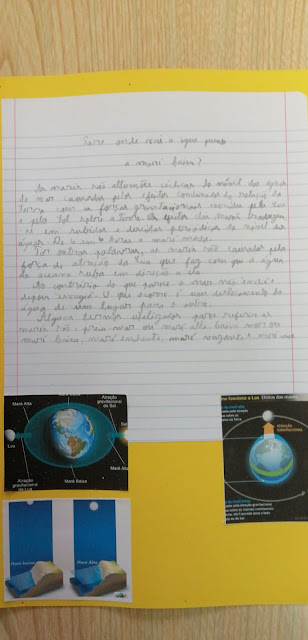 Para onde vai a água quando
a maré baixa?
As marés são alterações cíclicas do nível das águas
do mar causadas pelos efeitos combinados da rotação da
Terra com as forças gravitacionais exercidas pela Lua
e pelo Sol sobre a Terra. Os efeitos das marés traduzem-
se em subidas e descidas periódicas do nível das
águas. De 6 em 6 horas a maré muda.
Por outras palavras, as marés são causadas pela
força de atração da Lua que faz com que a água
do oceano suba em direção a ela.
Ao contrário do que parece, o mar não enche e
depois esvazia. O que ocorre é um deslocamento da
água de um lugar para o outro.
Alguns termos utilizados para referir as
marés são: preia-mar ou maré alta, baixa-mar ou
maré baixa, maré enchente, maré vazante e maré
Maré Baixa
Maré Alta
Atração gravitacional do Sol
Lua
Sol
Maré Alta
Atração gravitacional da Lua
Maré Baixa
mo funciona a Lua
Efeitos das marés
ATRAÇÃO GRAVITACIONAL
Maré baixa
Maré Alta